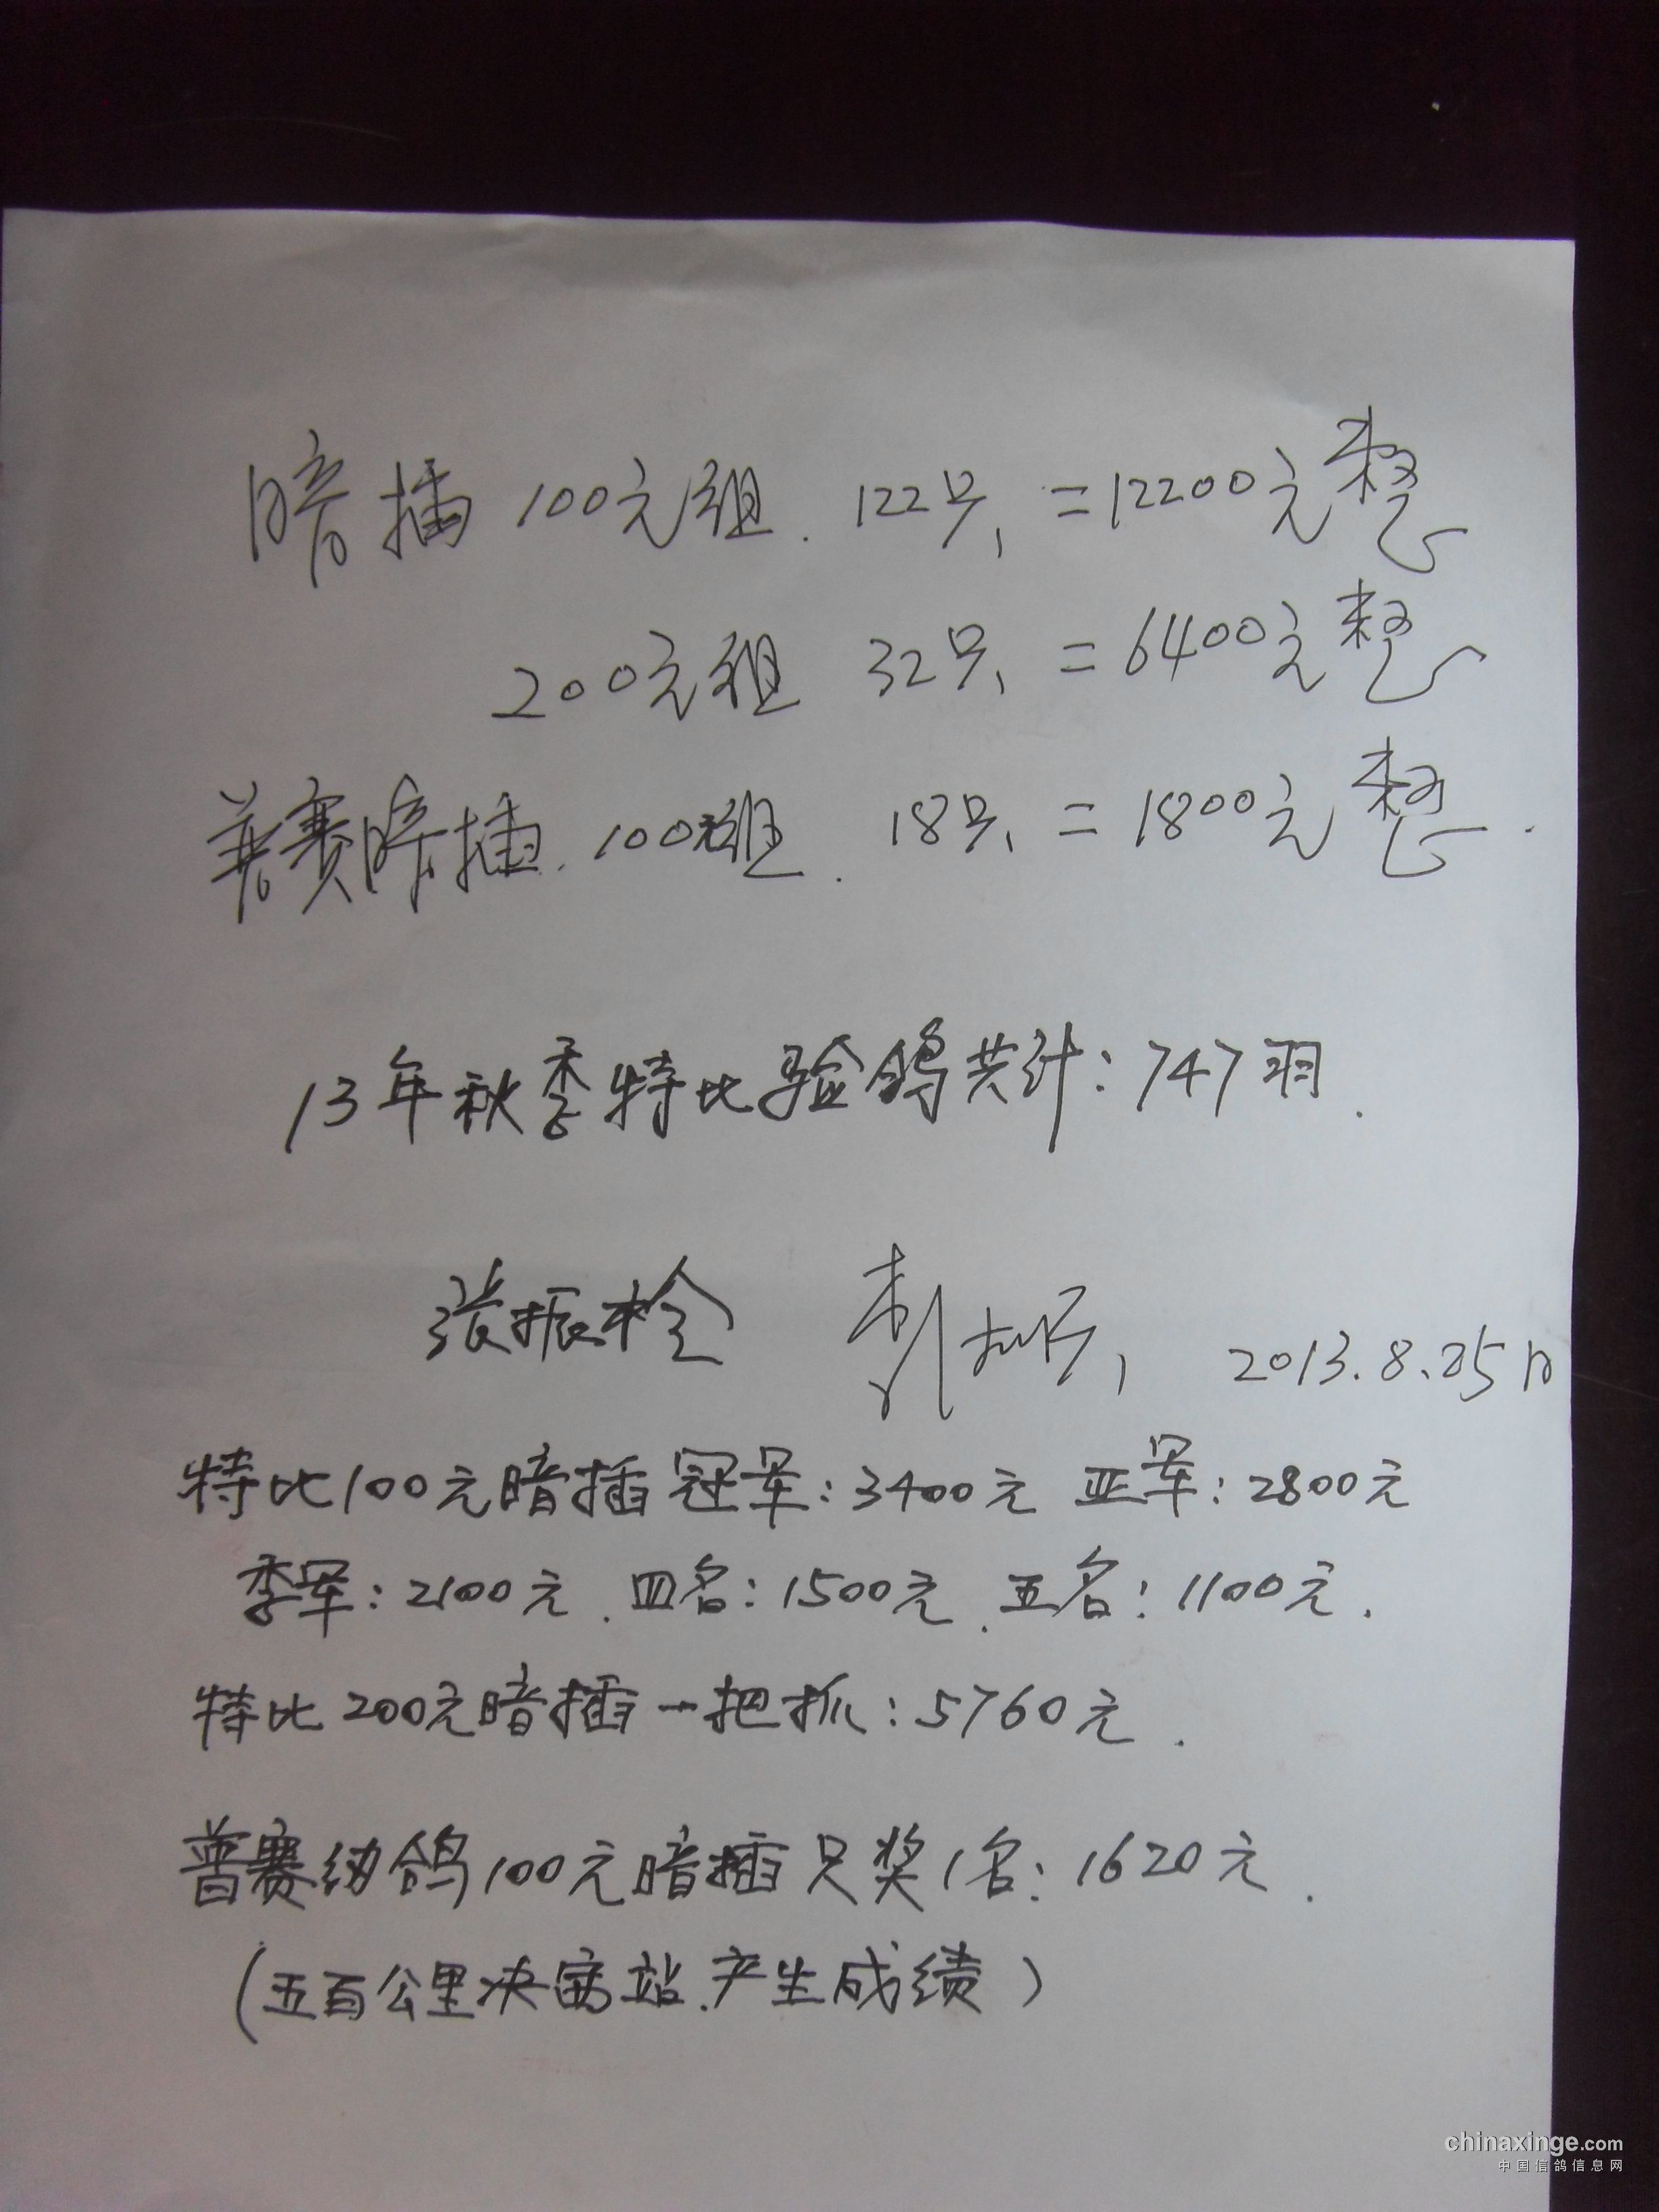 暗插100元组.122只,=12200元整
200元组 32只,=6400元整
普赛暗插.100元组.18只,=1800元整.
13年秋季特比验鸽共计:747羽.
张振栓 2013.8.25日
特比100元暗插冠军:3400元 亚军:2800元
季军:2100元.四名:1500元.五名:1100元.
特比200元暗插一把抓:5760元.
普赛幼鸽100元暗插只奖1名:1620元.
(五百公里决赛站.产生成绩)
chinaxinge.com
中国信鸽信息网